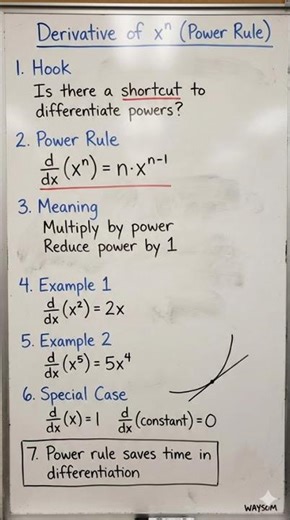 Derivative of xⁿ (Power Rule)
1. Hook
Is there a shortcut to
differentiate powers?
2. Power Rule
d/dx (xⁿ) = n·xⁿ⁻¹
3. Meaning
Multiply by power
Reduce power by 1
4. Example 1
d/dx (x²) = 2x
5. Example 2
d/dx (x⁵) = 5x⁴
6. Special Case
d/dx (x) = 1 d/dx (constant) = 0
7. Power rule saves time in
differentiation
WAYSOM